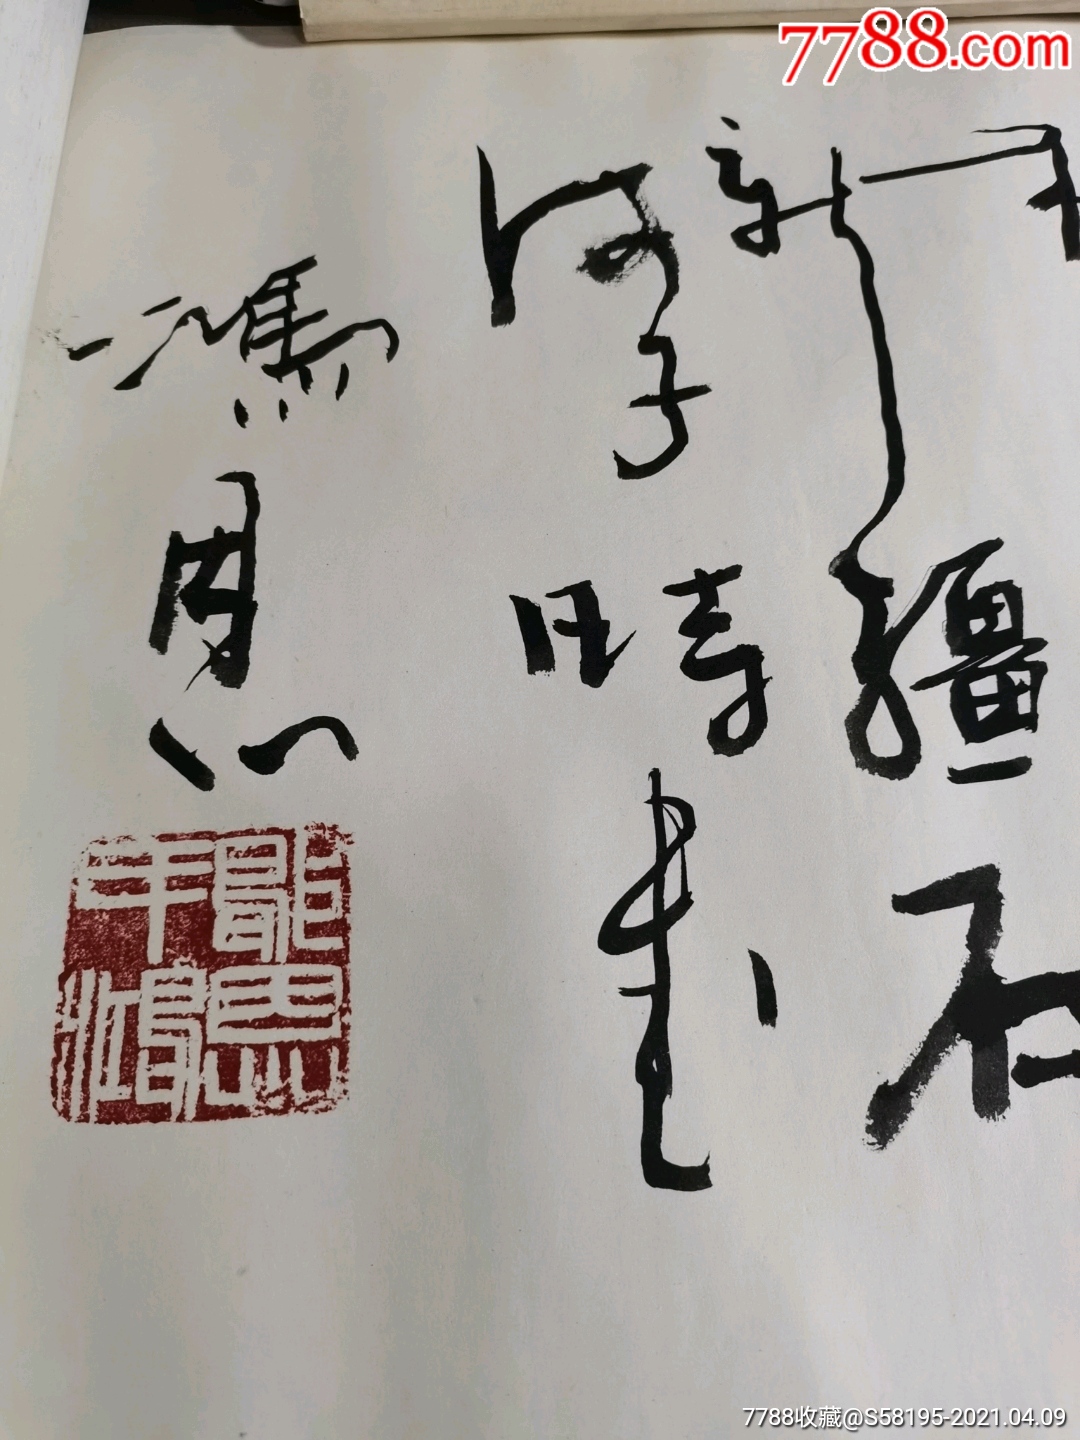 7788.com
新疆石
河子時書
鴻恩
7788收藏@S58195-2021.04.09